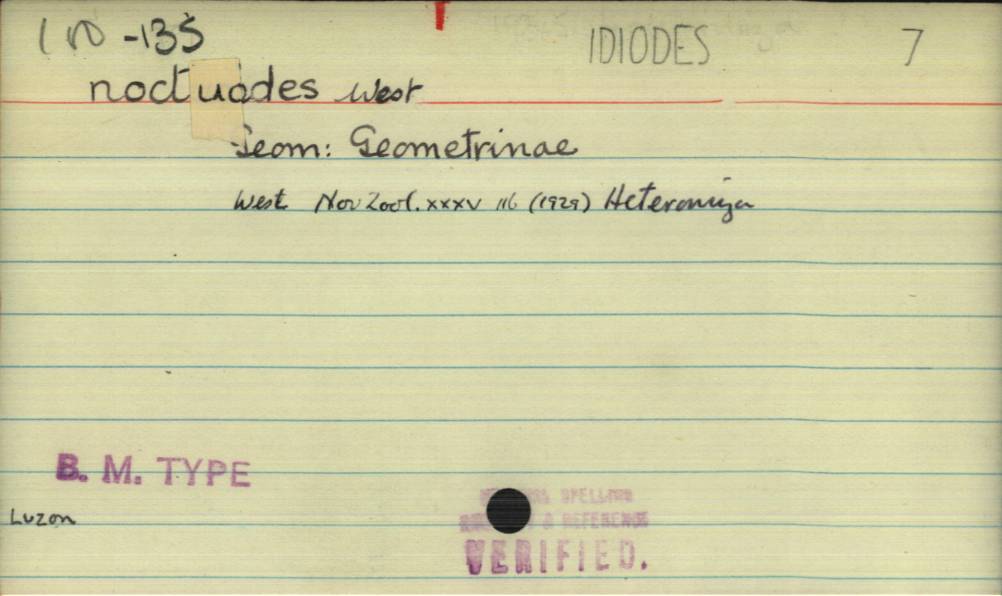 -135 IDIODES 7
noctuodes West
Geom: Geometrinae
West Nov Zool. xxxv 116 (1929) Heteromiza
B. M. TYPE
Luzon
SPELLING
& REFERENCE
VERIFIED.